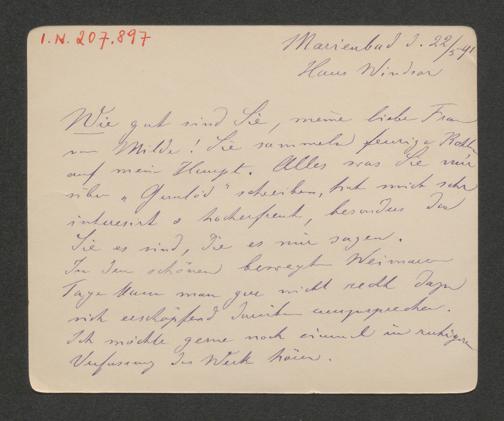 I.N. 207.897
Marienbad d. 22/5 91
Haus Windsor
Wie gut sind Sie, meine liebe Frau
von Milde! Sie sammeln feurige Kohlen
auf mein Haupt. Alles was Sie mir
über „Gunlöd" schreiben, hat mich sehr
interesirt & hocherfreut, besonders da
Sie es sind, die es mir sagen.
In den schönen bewegten Weimarer
Tagen kann man gar nicht recht dazu
sich erschöpfend darüber auszusprechen.
Ich möchte gerne noch einmal in ruhigerer
Verfassung das Werk hören.